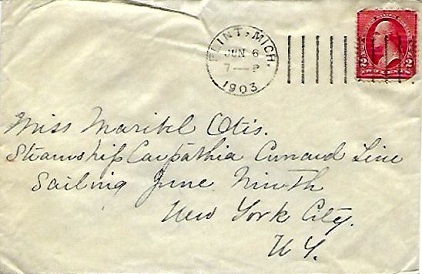 FLINT, MICH.
JUN 6
7—P
1903
Miss Maribel Otis.
Steamship Carpathia Cunard Line
Sailing June Ninth
New York City.
N.Y.